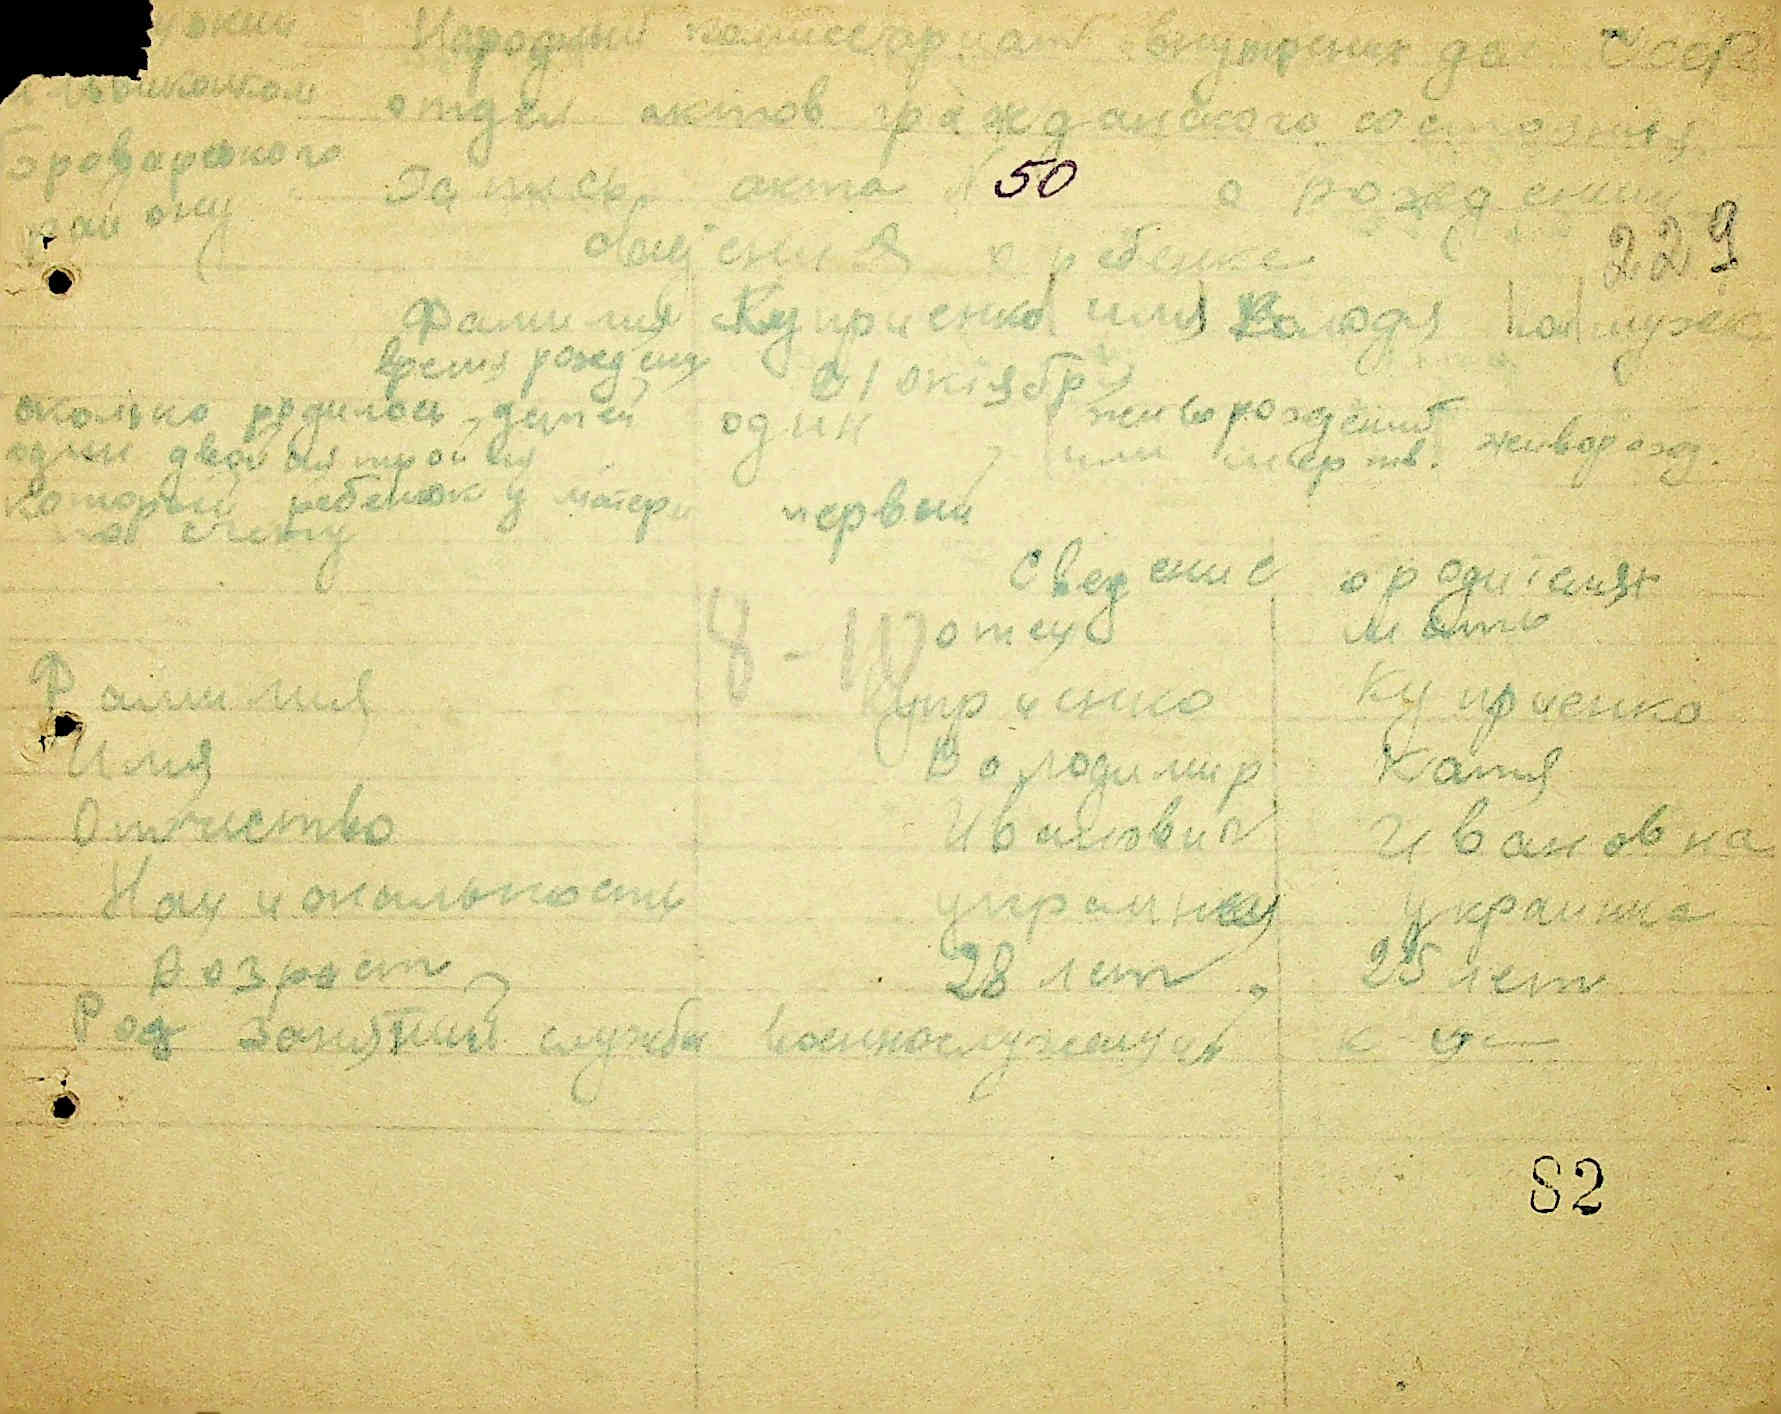 Народный комиссариат внутрених дел УССР
отдел актов гражданского состояния
Броварского
району
Запись акта № 50 о рождении
229
о ребенке
Фамилия Куприенко имя Володя пол мужск
время рождения 21 октября
сколько родилось детей один
живорождений
или мертв. живорожд.
одни двойня тройня
который ребенок у матери первый
по счету
Сведение о родителях
отец мать
Фамилия Куприенко Куприенко
Имя Володимир Катя
Отчиство Иванович Ивановна
Национальность украинец украинка
Возраст 28 лет 25 лет
Род занятий служба военнослужащий
82